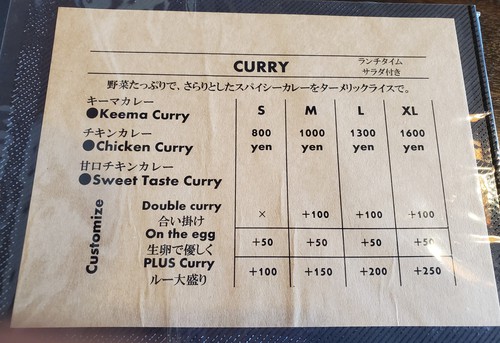 CURRY
ランチタイム
サラダ付き
野菜たっぷりで、さらりとしたスパイシーカレーをターメリックライスで。
キーマカレー
●Keema Curry
チキンカレー
●Chicken Curry
甘口チキンカレー
●Sweet Taste Curry
S M L XL
800 1000 1300 1600
yen yen yen yen
Customize
Double curry
合い掛け
× +100 +100 +100
On the egg
生卵で優しく
+50 +50 +50 +50
PLUS Curry
ルー大盛り
+100 +150 +200 +250